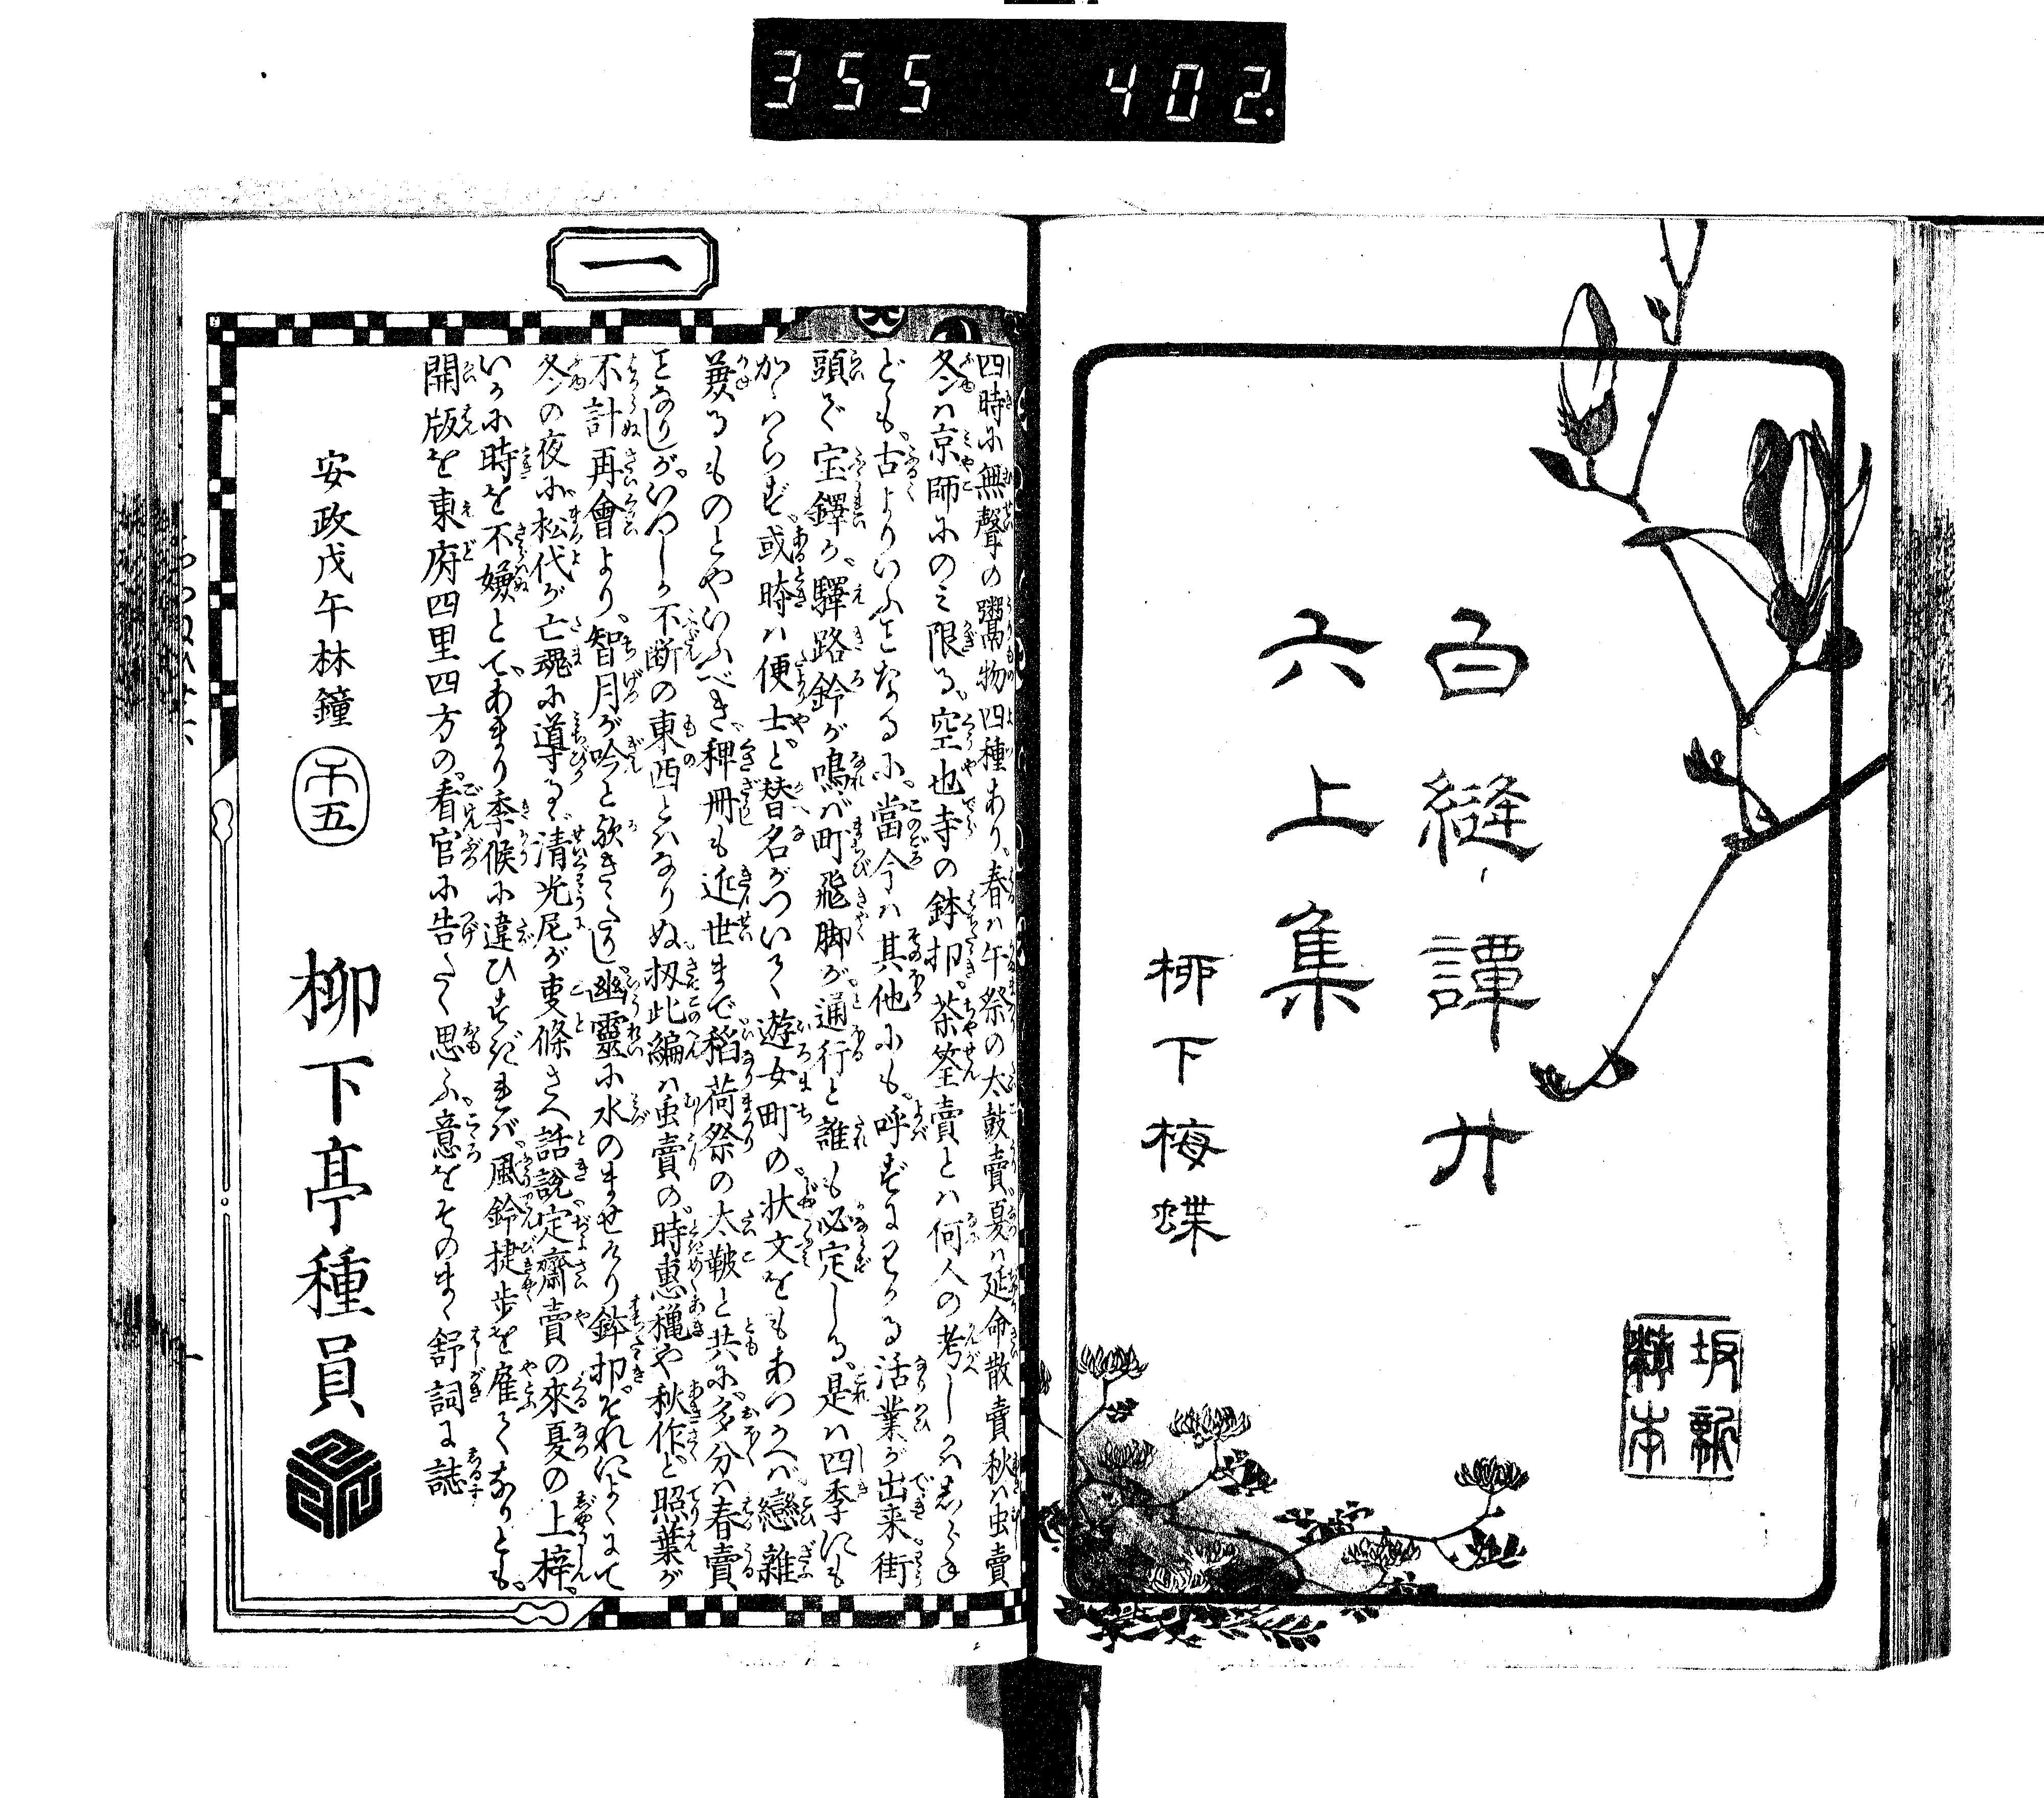 355 402.
白縫譚廿
六上集
柳下梅蝶
一
四時に無聲の鬻物四種あり春は午祭の太鼓賣夏は延命散賣秋は虫賣
冬は京師にのミ限る空也寺の鉢叩茶筌賣とは何人の考しか
ども古よりいふことなるに當今は其他にも呼ずにうる活業が出来街
頭で宝鐸か驛路鈴が鳴バ町飛脚が通行と誰も必定しる是は四季にも
かゝはらず或時は便士と替名がついて遊女町の状文をもあつかへバ戀雜
兼るものとやいふべき稗冊も近世まで稲荷祭の太皷と共に多分は春賣
となりしがいつしか不断の東西とはなりぬ扨此編は虫賣の時恵穐や秋作と照葉が
不計再會より智月が吟と歌きゝたりし幽靈に水のませけり鉢叩それによくにて
冬の夜に松代が亡魂に導る清光尼が叓條さへ話説定齋賣の來夏の上梓
いかに時を不嫌とてあまり季候に違ひすぎれバ風鈴捷歩を雇てなりとも
開版を東府四里四方の看官に告たく思ふ意をそのまゝ舒詞に誌
安政戊午林鐘
柳下亭種員